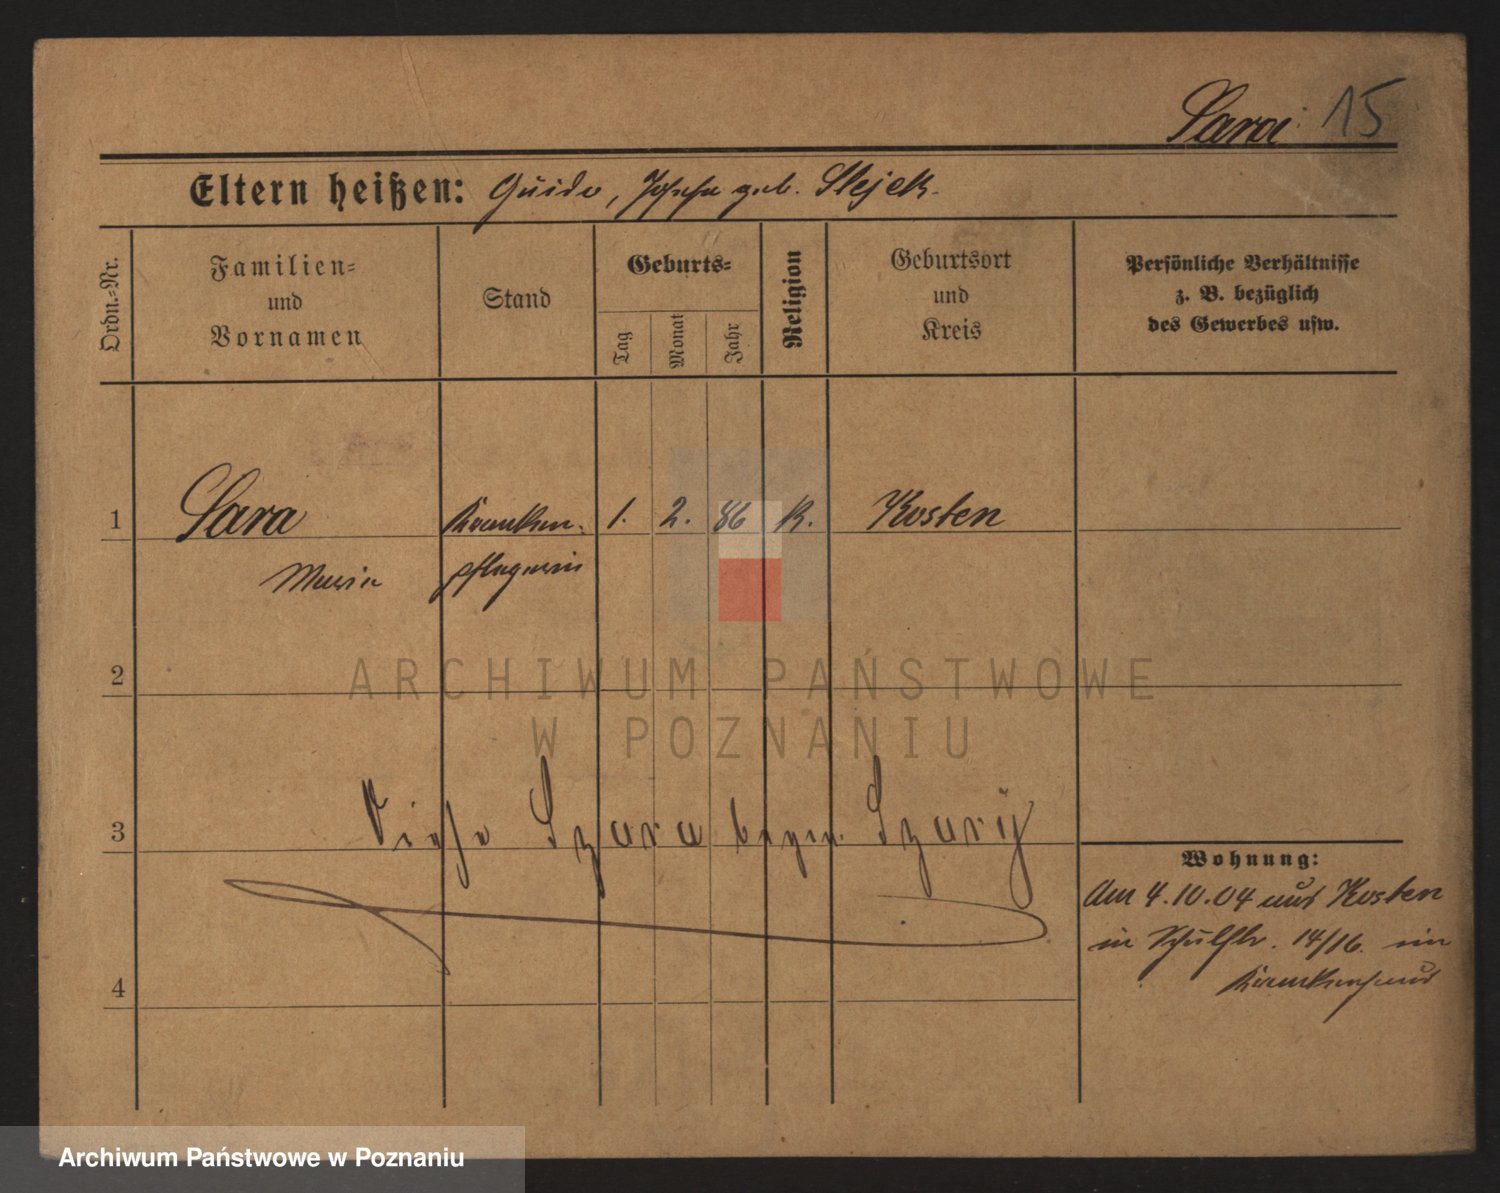 Sara 15
Eltern heißen: Guido, Josefa geb. Slejek.
Ordn.=Nr.
Familien=
und
Vornamen
Stand
Geburts=
Tag
Monat
Jahr
Religion
Geburtsort
und
Kreis
Persönliche Verhältnisse
z. B. bezüglich
des Gewerbes usw.
1 Sara Kranken- 1. 2. 86 K. Kosten
Maria pflegerin
2
ARCHIWUM PAŃSTWOWE
W POZNANIU
3 Siehe Szara bezw. Szary
Wohnung:
Am 4.10.04 aus Kosten
in Schulstr. 14/16. im
Krankenhaus
4
Archiwum Państwowe w Poznaniu